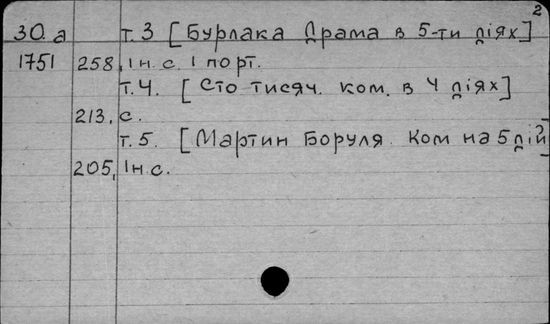 2
30.а т.3 [Бурлака Драма в 5-ти діях]
1751 258, Ін.с. 1 порт.
т.4. [Сто тисяч. ком. в 4 діях]
213, с.
т.5. [Мартин Боруля. Ком на 5 дій]
205, Ін.с.